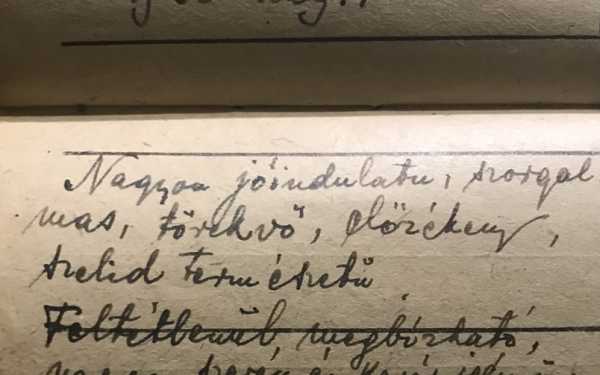 Nagyon jóindulatu, szorgal
mas, törekvő, előzékeny,
szelid természetű
Feltétlenül megbízható,